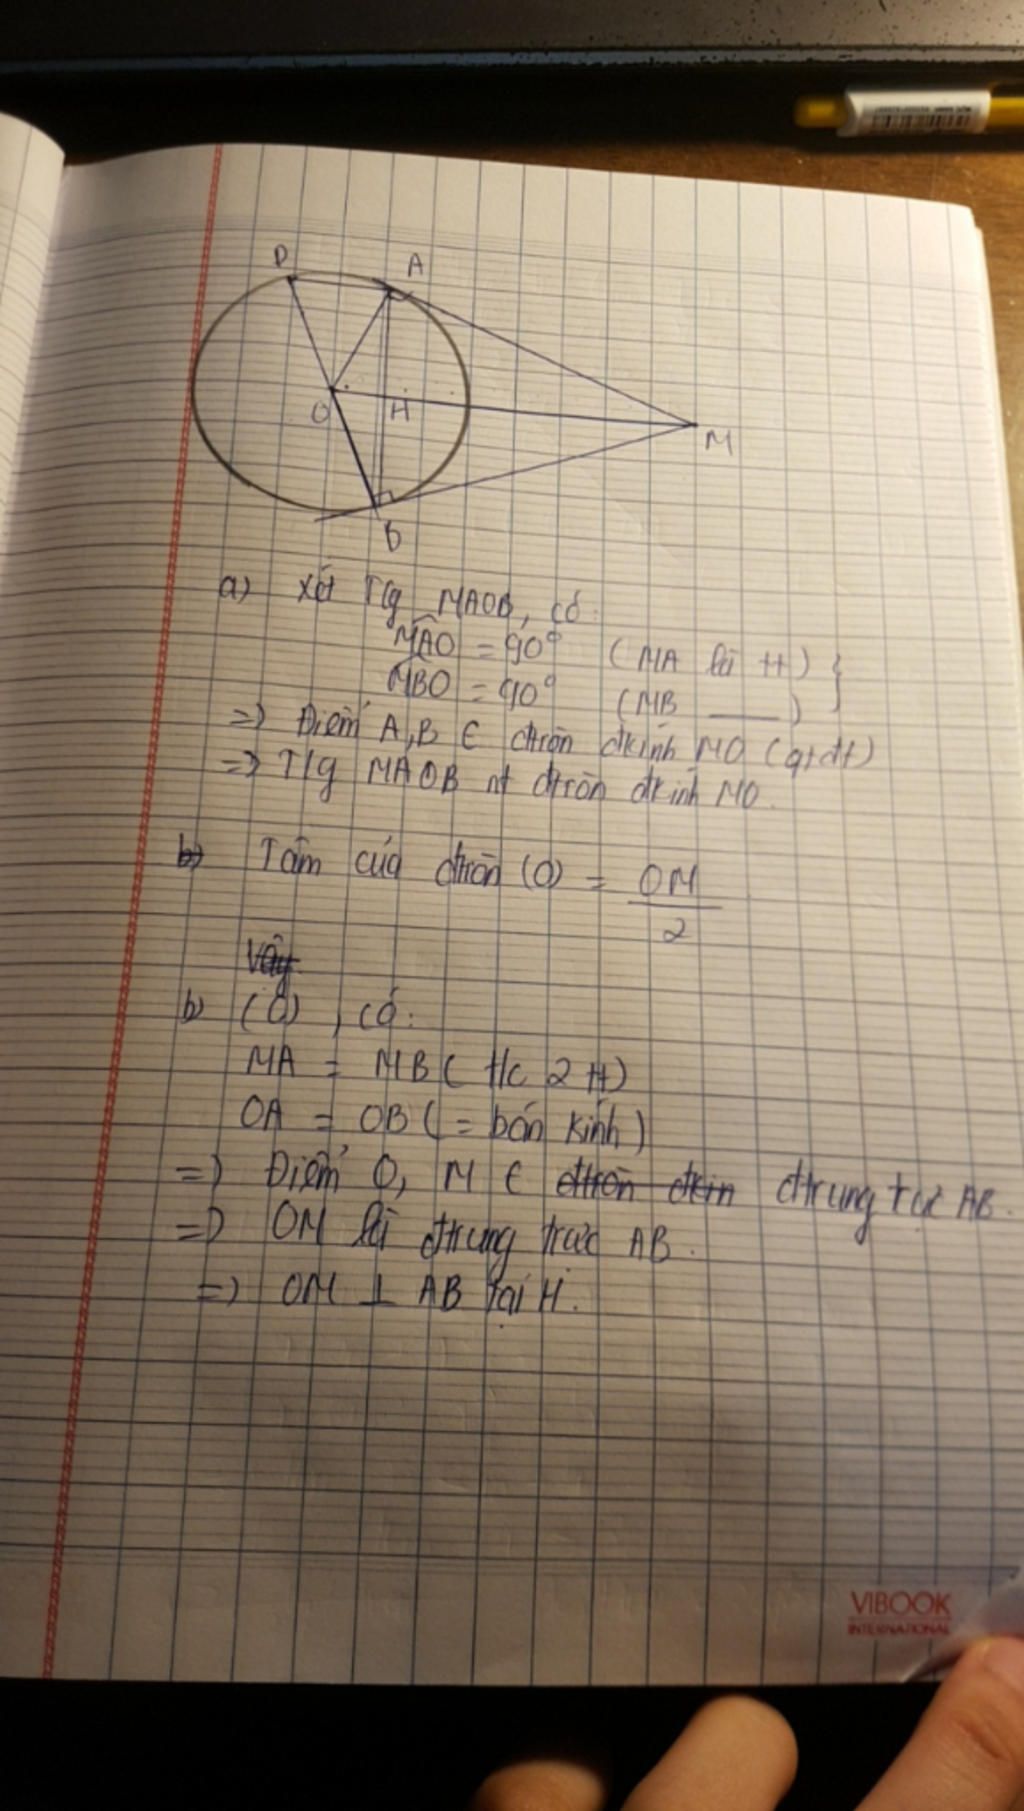 D A
O H
M
B
a) Xét T/g MAOB, có:
MAO = 90° (MA là tt) }
MBO = 90° (MB ___)
=> Điểm A,B ∈ đtròn đkính MO (qtđt)
=> T/g MAOB nt đtròn đkính MO.
b) Tâm của đtròn (O) = OM
2
Vậy
b) (O), có:
MA = MB ( t/c 2 tt)
OA = OB ( = bán kính)
=> Điểm O, M ∈ đtròn đkín đtrung trực AB.
=> OM là đtrung trực AB.
=> OM ⊥ AB tại H.
VIBOOK
INTERNATIONAL